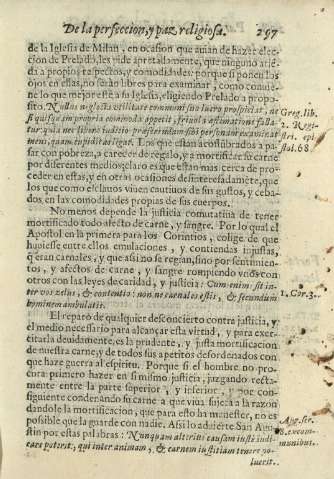 De la perfeccion, y paz religiosa. 297
de la Iglesia de Milan, en ocasion que auian de hazer elec-
cion de Prelado, les pide apretadamente, que ninguno atiē-
da a propios respectos, y comodidades: porque si ponen los
ojos en estas, no serán libres para examinar, como conuie-
ne lo que mejor esté a su Iglesia, eligiendo Prelado a propo-
sito. Nullus neglecta vtilitate communi suo lucro prospiciat, ne
si quisquam propria commoda appetit, friuola æstimatione falla-
tur: quia nec libero iudicio præferendam sibi personam examinat
mens, quam cupiditas ligat. Los que estan acostūbrados a pas-
sar con pobreza, a carecer de regalo, y a mortificar su carne
por diferentes medios; claro es que estan mas cerca de pro-
ceder en estas, y en otras ocasiones desinteresadamēte, que
los que como esclauos viuen cautiuos de sus gustos, y ceba-
dos en las comodidades propias de sus cuerpos.
No menos depende la justicia comutatiua de tener
mortificado todo afecto de carne, y sangre. Por lo qual el
Apostol en la primera para los Corintios, colige de que
huuiesse entre ellos emulaciones, y contiendas injustas,
q̄ eran carnales, y que assi no se regian, sino por sentimien-
tos, y afectos de carne, y sangre rompiendo vnos con
otros con las leyes de caridad, y justicia: Cum enim sit in-
ter vos zelus, & contentio: non ne carnales estis, & secundum
hominem ambulatis.
El reparo de qualquier desconcierto contra justicia, y
el medio necessario para alcançar esta virtud, y para exer-
citarla deuidamente, es la prudente, y justa mortificacion
de nuestra carne, y de todos sus apetitos desordenados con
que haze guerra al espiritu. Porque si el hombre no pro-
cura primero hazer en si mismo justicia, juzgando recta-
mente entre la parte superior, y inferior, y por con-
siguiente condenando su carne a que viua sujeta a la razon
dandole la mortificacion, que para esto ha menester, no es
possible que la guarde con nadie. Assi lo aduierte San Agu-
stin por estas palabras: Nunquam alterius causam iuste iudi-
care poterit, qui inter animam, & carnem iustitiam tenere no-
luerit.
Greg. lib.
2. Regist.
epist. 68.
1. Cor. 3.
Aug. ser.
munibus.